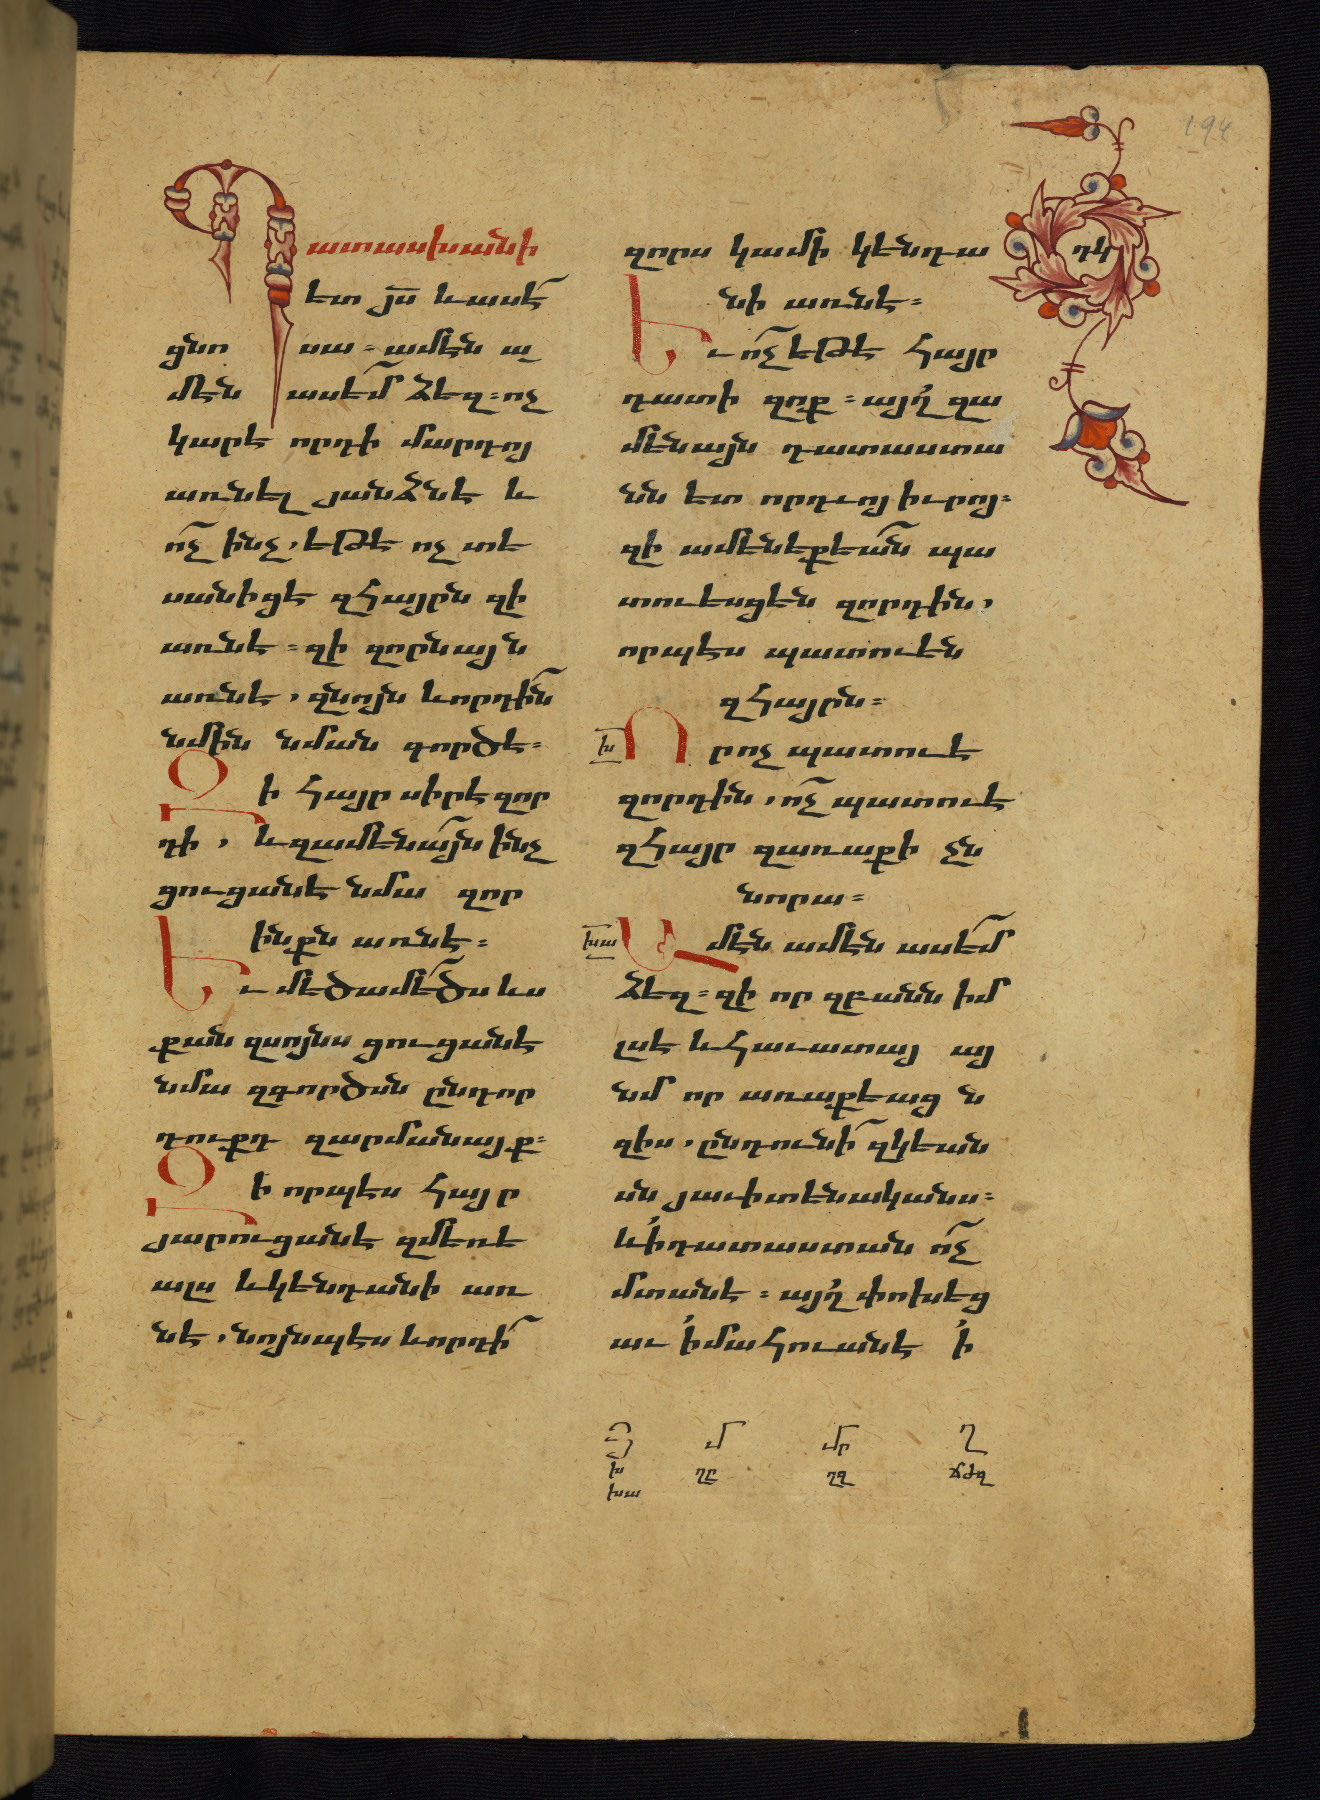 Պատասխանի
ետ յս և ասէ
ցնո սա = ամէն ա
մէն ասեմ ձեզ = ոչ
կարէ որդի մարդոյ
առնել յանձնէ և
ոչ ինչ, եթե ոչ տե
սանիցէ զհայրն զի
առնէ = զի զորնայն
առնէ, զնոյն և որդին
նմին նման գործէ =
Զի հայր սիրէ զոր
դի, և զամենայն ինչ
ցուցանէ նմա զոր
ինքն առնէ =
Եւ մեծամեծս ևս
քան զսոյնս ցուցանէ
նմա զգործսն ընդոր
դուքդ զարմանայք =
Զի որպէս հայր
յարուցանէ զմեռե
ալս և կենդանի առ
նէ, նոյնպէս և որդի
զորս կամի կենդա
նի առնէ =
Եւ ոչ եթե հայր
դատի զոք = այղ զա
մենայն դատաստա
նն ետ որդւոյ իւրոյ =
զի ամենեքեան պա
տուեսցեն զորդին,
որպէս պատուեն
զհայրն =
խ Որ ոչ պատուէ
զորդին, ոչ պատուէ
զհայր զառաքի չն
նորա =
խա Ամէն ամէն ասեմ
ձեզ = զի որ զբանն իմ
լսէ և հաւատայ այ
նմ որ առաքեաց ն
զիս, ընդունի զկեան
սն յաւիտենականս =
և ի դատաստան ոչ
մտանէ = այղ փոխեց
աւ ի մահուանէ ի
դկ
194
Յ մ մր ղ
խ ղը ղզ ճժզ
խա